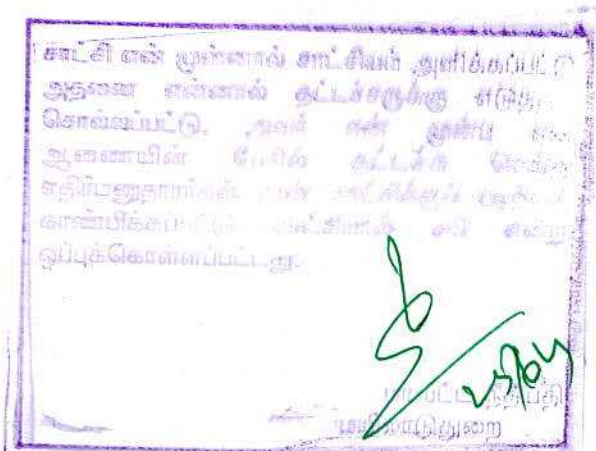 சாட்சி என் முன்னால் சாட்சியம் அளிக்கப்பட்டு
அதனை என்னால் தட்டச்சருக்கு எடுத்து
சொல்லப்பட்டு, அவர் என் முன்பு என்
ஆணையின் பேரில் தட்டச்சு செய்து
காண்பிக்கப்பட்டு சாட்சியால் சரி என்று
ஒப்புக்கொள்ளப்பட்டது.
மாவட்ட நீதிபதி
மயிலாடுதுறை